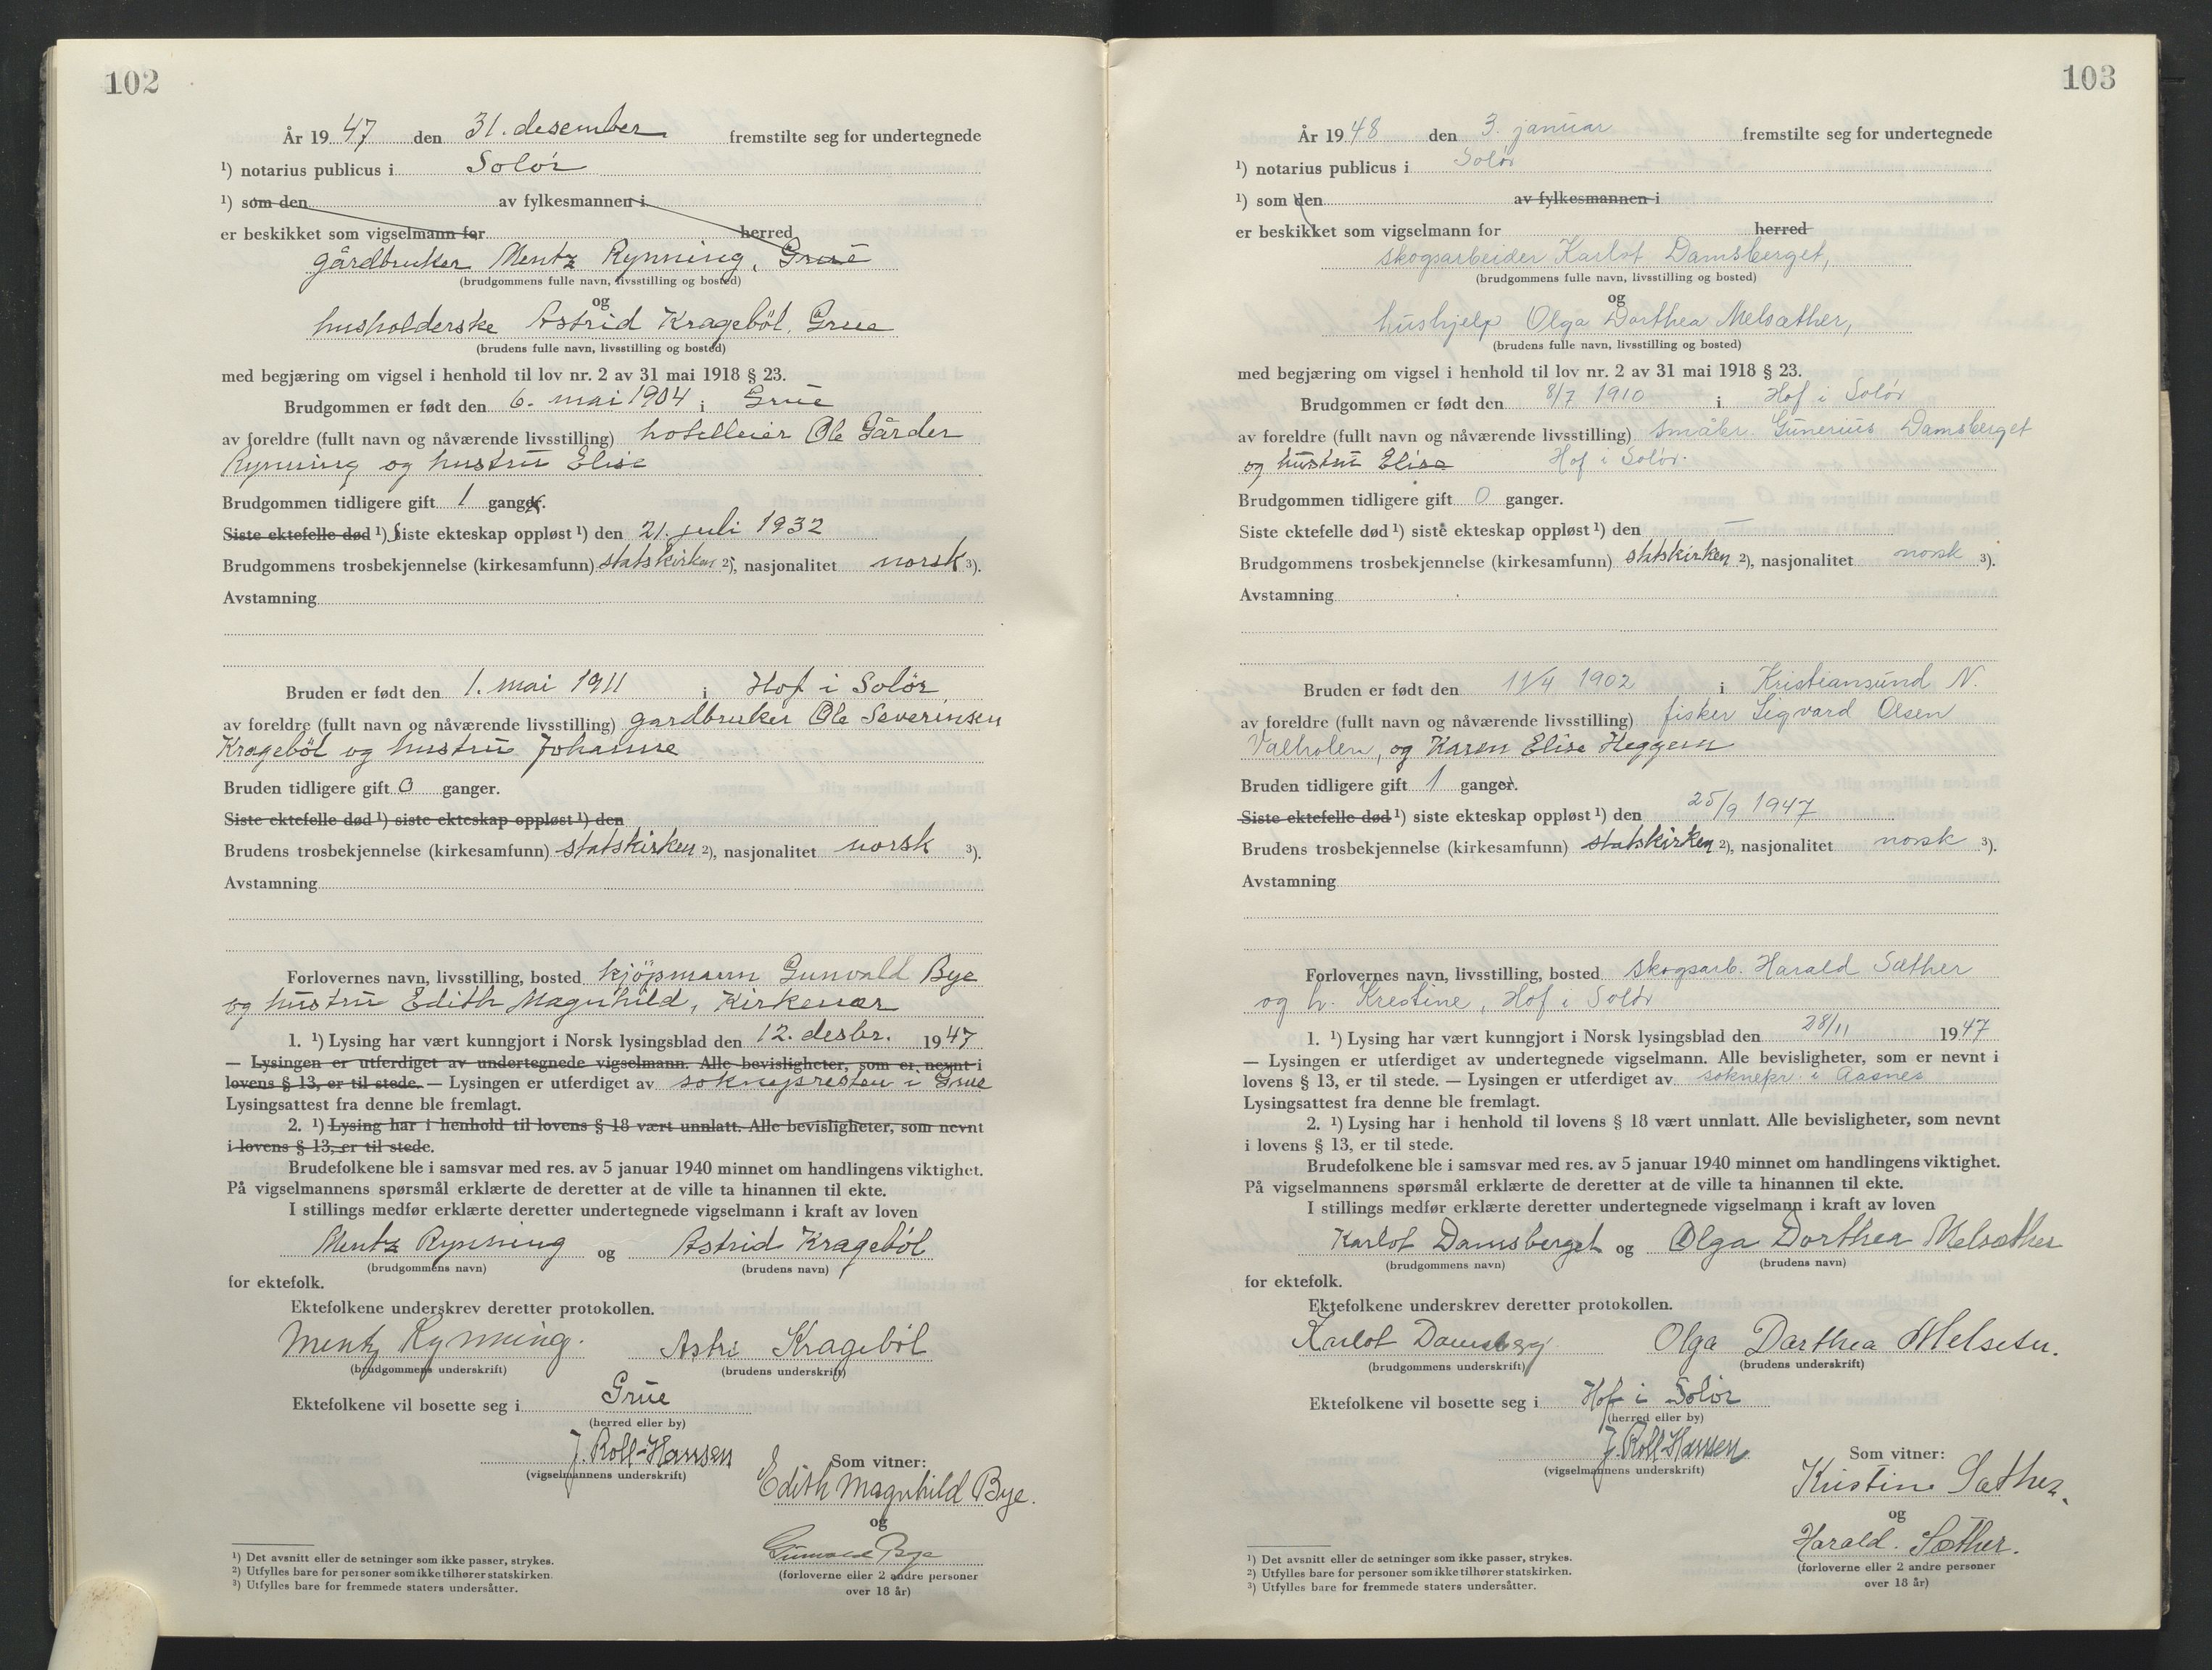 102
År 19 47 den 31. desember fremstilte seg for undertegnede
¹) notarius publicus i Solör
¹) som den av fylkesmannen i
er beskikket som vigselmann for herred
gårdbruker Mentz Rynning, Grue
(brudgommens fulle navn, livsstilling og bosted)
og
husholderske Astrid Krageböl, Grue
(brudens fulle navn, livsstilling og bosted)
med begjæring om vigsel i henhold til lov nr. 2 av 31 mai 1918 § 23.
Brudgommen er født den 6. mai 1904 i Grue
av foreldre (fullt navn og nåværende livsstilling) hotelleier Ole Gårder
Rynning og hustru Elise
Brudgommen tidligere gift 1 ganger.
Siste ektefelle død ¹) siste ekteskap oppløst ¹) den 21. juli 1932
Brudgommens trosbekjennelse (kirkesamfunn) statskirken ²), nasjonalitet norsk ³).
Avstamning
Bruden er født den 1. mai 1911 i Hof i Solör
av foreldre (fullt navn og nåværende livsstilling) gardbruker Ole Severinsen
Krageböl og hustru Johanne
Bruden tidligere gift 0 ganger.
Siste ektefelle død ¹) siste ekteskap oppløst ¹) den
Brudens trosbekjennelse (kirkesamfunn) statskirken ²), nasjonalitet norsk ³).
Avstamning
Forlovernes navn, livsstilling, bosted kjöpmann Gunvald Bye
og hustru Edith Magnhild, Kirkenær
1. ¹) Lysing har vært kunngjort i Norsk lysingsblad den 12. desbr. 19 47
— Lysingen er utferdiget av undertegnede vigselmann. Alle bevisligheter, som er nevnt i
lovens § 13, er til stede. — Lysingen er utferdiget av soknepresten i Grue
Lysingsattest fra denne ble fremlagt.
2. ¹) Lysing har i henhold til lovens § 18 vært unnlatt. Alle bevisligheter, som nevnt
i lovens § 13, er til stede.
Brudefolkene ble i samsvar med res. av 5 januar 1940 minnet om handlingens viktighet.
På vigselmannens spørsmål erklærte de deretter at de ville ta hinannen til ekte.
I stillings medfør erklærte deretter undertegnede vigselmann i kraft av loven
Mentz Rynning og Astrid Krageböl
(brudgommens navn) (brudens navn)
for ektefolk.
Ektefolkene underskrev deretter protokollen.
Mentz Rynning. Astri Krageböl
(brudgommens underskrift) (brudens underskrift)
Ektefolkene vil bosette seg i Grue
(herred eller by)
J. Roll-Hansen
(vigselmannens underskrift)
Som vitner:
Edith Magnhild Bye.
og
Gunvald Bye
(forloverne eller 2 andre personer
over 18 år)
¹) Det avsnitt eller de setninger som ikke passer, strykes.
²) Utfylles bare for personer som ikke tilhører statskirken.
³) Utfylles bare for fremmede staters undersåtter.
103
År 19 48 den 3. januar fremstilte seg for undertegnede
¹) notarius publicus i Solör
¹) som den av fylkesmannen i
er beskikket som vigselmann for herred
skogsarbeider Karlot Damsberget,
(brudgommens fulle navn, livsstilling og bosted)
og
hushjelp Olga Dorthea Melsæther,
(brudens fulle navn, livsstilling og bosted)
med begjæring om vigsel i henhold til lov nr. 2 av 31 mai 1918 § 23.
Brudgommen er født den 8/7 1910 i Hof i Solör
av foreldre (fullt navn og nåværende livsstilling) småbr. Gunerius Damsberget
og hustru Elise Hof i Solör.
Brudgommen tidligere gift 0 ganger.
Siste ektefelle død ¹) siste ekteskap oppløst ¹) den —
Brudgommens trosbekjennelse (kirkesamfunn) statskirken ²), nasjonalitet norsk ³).
Avstamning
Bruden er født den 11/4 1902 i Kristiansund N.
av foreldre (fullt navn og nåværende livsstilling) fisker Segvard Olsen
Valholen, og Karen Elise Heggem
Bruden tidligere gift 1 ganger.
Siste ektefelle død ¹) siste ekteskap oppløst ¹) den 25/9 1947
Brudens trosbekjennelse (kirkesamfunn) statskirken ²), nasjonalitet norsk ³).
Avstamning
Forlovernes navn, livsstilling, bosted skogsarb. Harald Sæther
og h. Krestine, Hof i Solör
1. ¹) Lysing har vært kunngjort i Norsk lysingsblad den 28/11 19 47
— Lysingen er utferdiget av undertegnede vigselmann. Alle bevisligheter, som er nevnt i
lovens § 13, er til stede. — Lysingen er utferdiget av soknepr. i Aasnes
Lysingsattest fra denne ble fremlagt.
2. ¹) Lysing har i henhold til lovens § 18 vært unnlatt. Alle bevisligheter, som nevnt
i lovens § 13, er til stede.
Brudefolkene ble i samsvar med res. av 5 januar 1940 minnet om handlingens viktighet.
På vigselmannens spørsmål erklærte de deretter at de ville ta hinannen til ekte.
I stillings medfør erklærte deretter undertegnede vigselmann i kraft av loven
Karlot Damsberget og Olga Dorthea Melsæther
(brudgommens navn) (brudens navn)
for ektefolk.
Ektefolkene underskrev deretter protokollen.
Karlot Damsberg Olga Darthea Melseter.
(brudgommens underskrift) (brudens underskrift)
Ektefolkene vil bosette seg i Hof i Solör
(herred eller by)
J. Roll-Hansen
(vigselmannens underskrift)
Som vitner:
Kristine Sæther.
og
Harald. Sæther.
(forloverne eller 2 andre personer
over 18 år)
¹) Det avsnitt eller de setninger som ikke passer, strykes.
²) Utfylles bare for personer som ikke tilhører statskirken.
³) Utfylles bare for fremmede staters undersåtter.